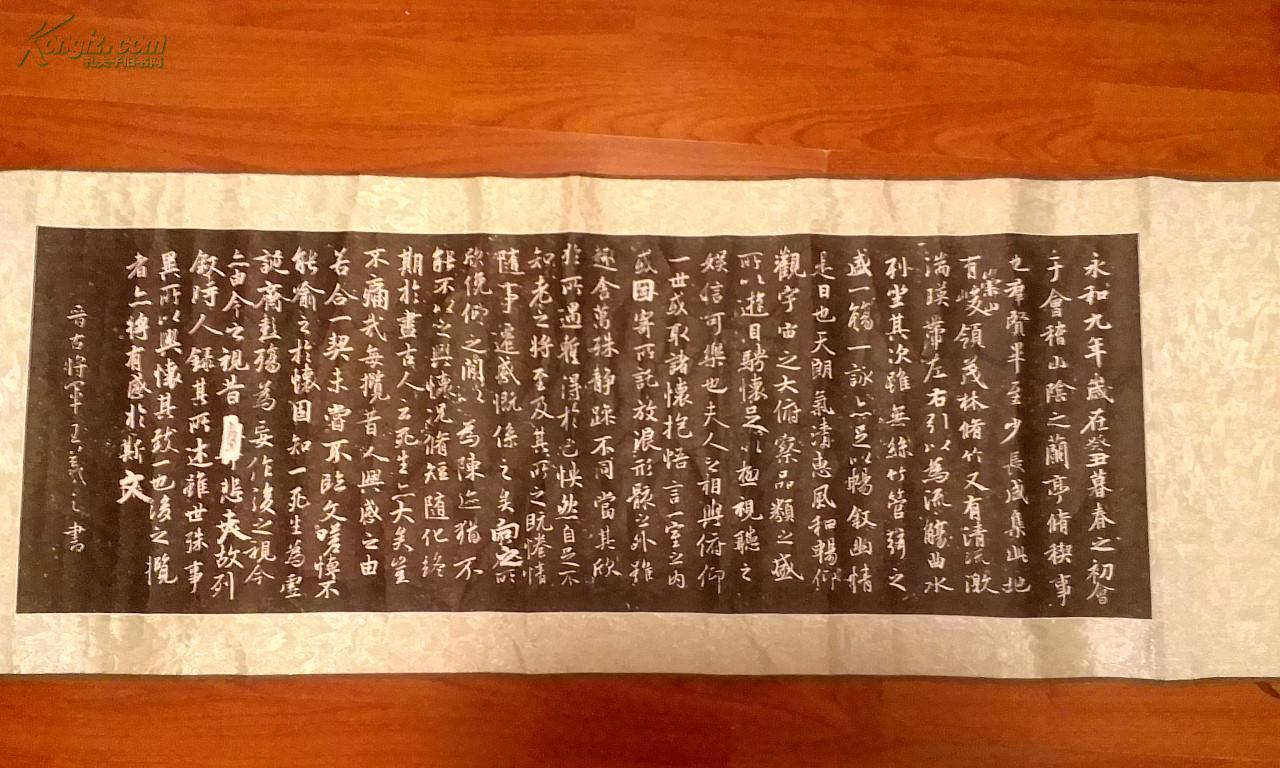 Kongfz.com
孔夫子旧书网
永和九年歲在癸丑暮春之初會
于會稽山陰之蘭亭脩稧事
也羣賢畢至少長咸集此地
有崇山峻領茂林脩竹又有清流激
湍暎帶左右引以為流觴曲水
列坐其次雖無絲竹管弦之
盛一觴一詠亦足以暢敘幽情
是日也天朗氣清惠風和暢仰
觀宇宙之大俯察品類之盛
所以遊目騁懷足以極視聽之
娛信可樂也夫人之相與俯仰
一世或取諸懷抱悟言一室之內
或因寄所託放浪形骸之外雖
趣舍萬殊靜躁不同當其欣
於所遇暫得於己怏然自足不
知老之將至及其所之既惓情
隨事遷感慨係之矣向之所
欣俛仰之閒以為陳迹猶不
能不以之興懷況脩短隨化終
期於盡古人云死生亦大矣豈
不痛哉每攬昔人興感之由
若合一契未嘗不臨文嗟悼不
能喻之於懷固知一死生為虛
誕齊彭殤為妄作後之視今
亦由今之視昔悲夫故列
敘時人錄其所述雖世殊事
異所以興懷其致一也後之攬
者亦將有感於斯文
晉右將軍王羲之書